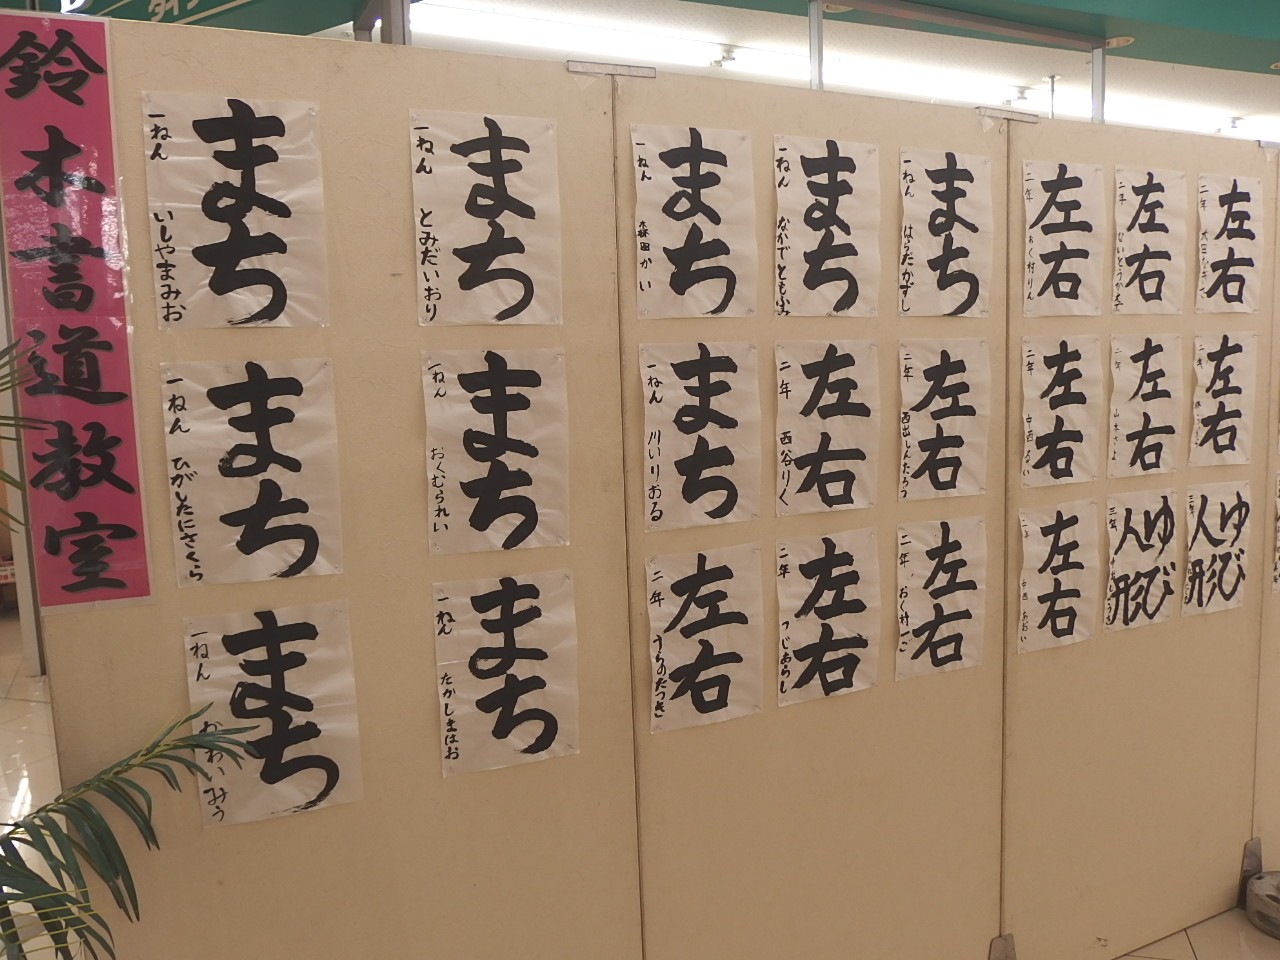 鈴木書道教室
まち
一ねん いしやまみお
まち
一ねん とみだいおり
まち
一ねん 森田かい
まち
一ねん なかでともふみ
まち
一ねん はらだかずし
左右
二年 おく村りん
左右
二年
左右
二年
まち
一ねん ひがしたにさくら
まち
一ねん おくむられい
まち
一ねん 川いりおる
左右
二年 西谷りく
左右
二年 西出しんたろう
左右
二年 中西るい
左右
二年 山本さよ
左右
二年
まち
一ねん かわいみう
まち
一ねん たかしまはお
左右
二年 うらのたつき
左右
二年 つじあらし
左右
二年 おく村一ご
左右
二年 中西あおい
ゆび人形
三年
ゆび人形
三年